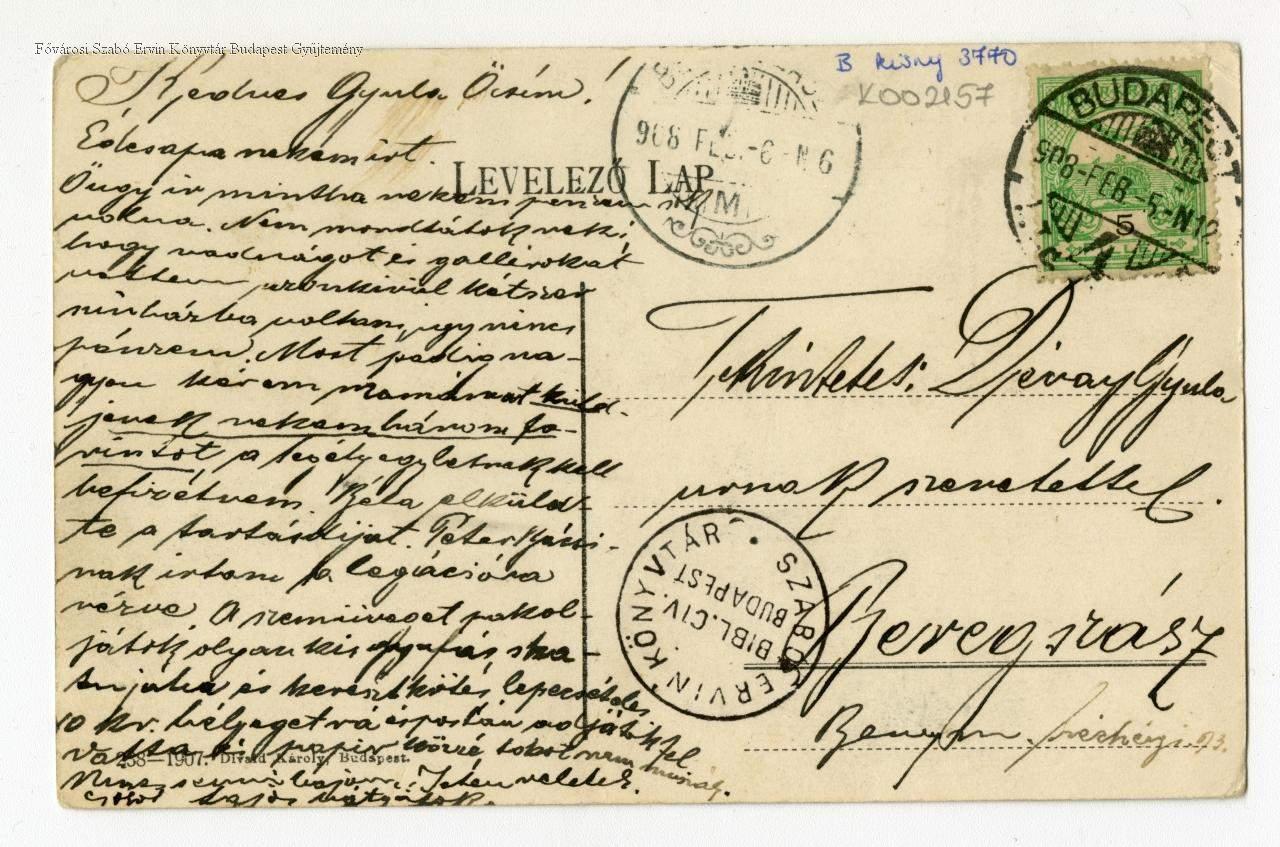 Fővárosi Szabó Ervin Könyvtár Budapest Gyűjtemény
B kisny 3770
K002157
Kedves Gyula Öcsém!
Édesapa nekem irt.
Őugy ir mintha nekem pénzem sok
volna. Nem mondtátok neki,
hogy nadrágot és gallérokat
vettem azonkivül kétszer
szinházba voltam, igy nincs
pénzem. Most pedig na-
gyon kérem mamámat küld-
jenek nekem három fo-
rintot a segélyegyletnek kell
befizetnem. Béla elküld-
te a tartásdijat. Péter
nak irtam a legációra
nézve. A szemüveget pakol-
játok olyan kis gyufás ska-
tujába és keresztkötés lepecsételes
10 kr. bélyeget rá és postán adjátok fel
papir közzé tokot nem muszáj.
Nincs semmi bajom. Isten veletek.
csókol Lajos bátyátok.
LEVELEZŐ LAP
908 FEB.-6-N6
BUDAPEST
908-FEB-5-N12
5
Tekintetes: Dévay Gyula
urnak szeretettel.
Beregszász
Bereg m.
SZABÓ ERVIN KÖNYVTÁR
BIBL. CIV.
BUDAPEST
238—1907. Divald Károly, Budapest.